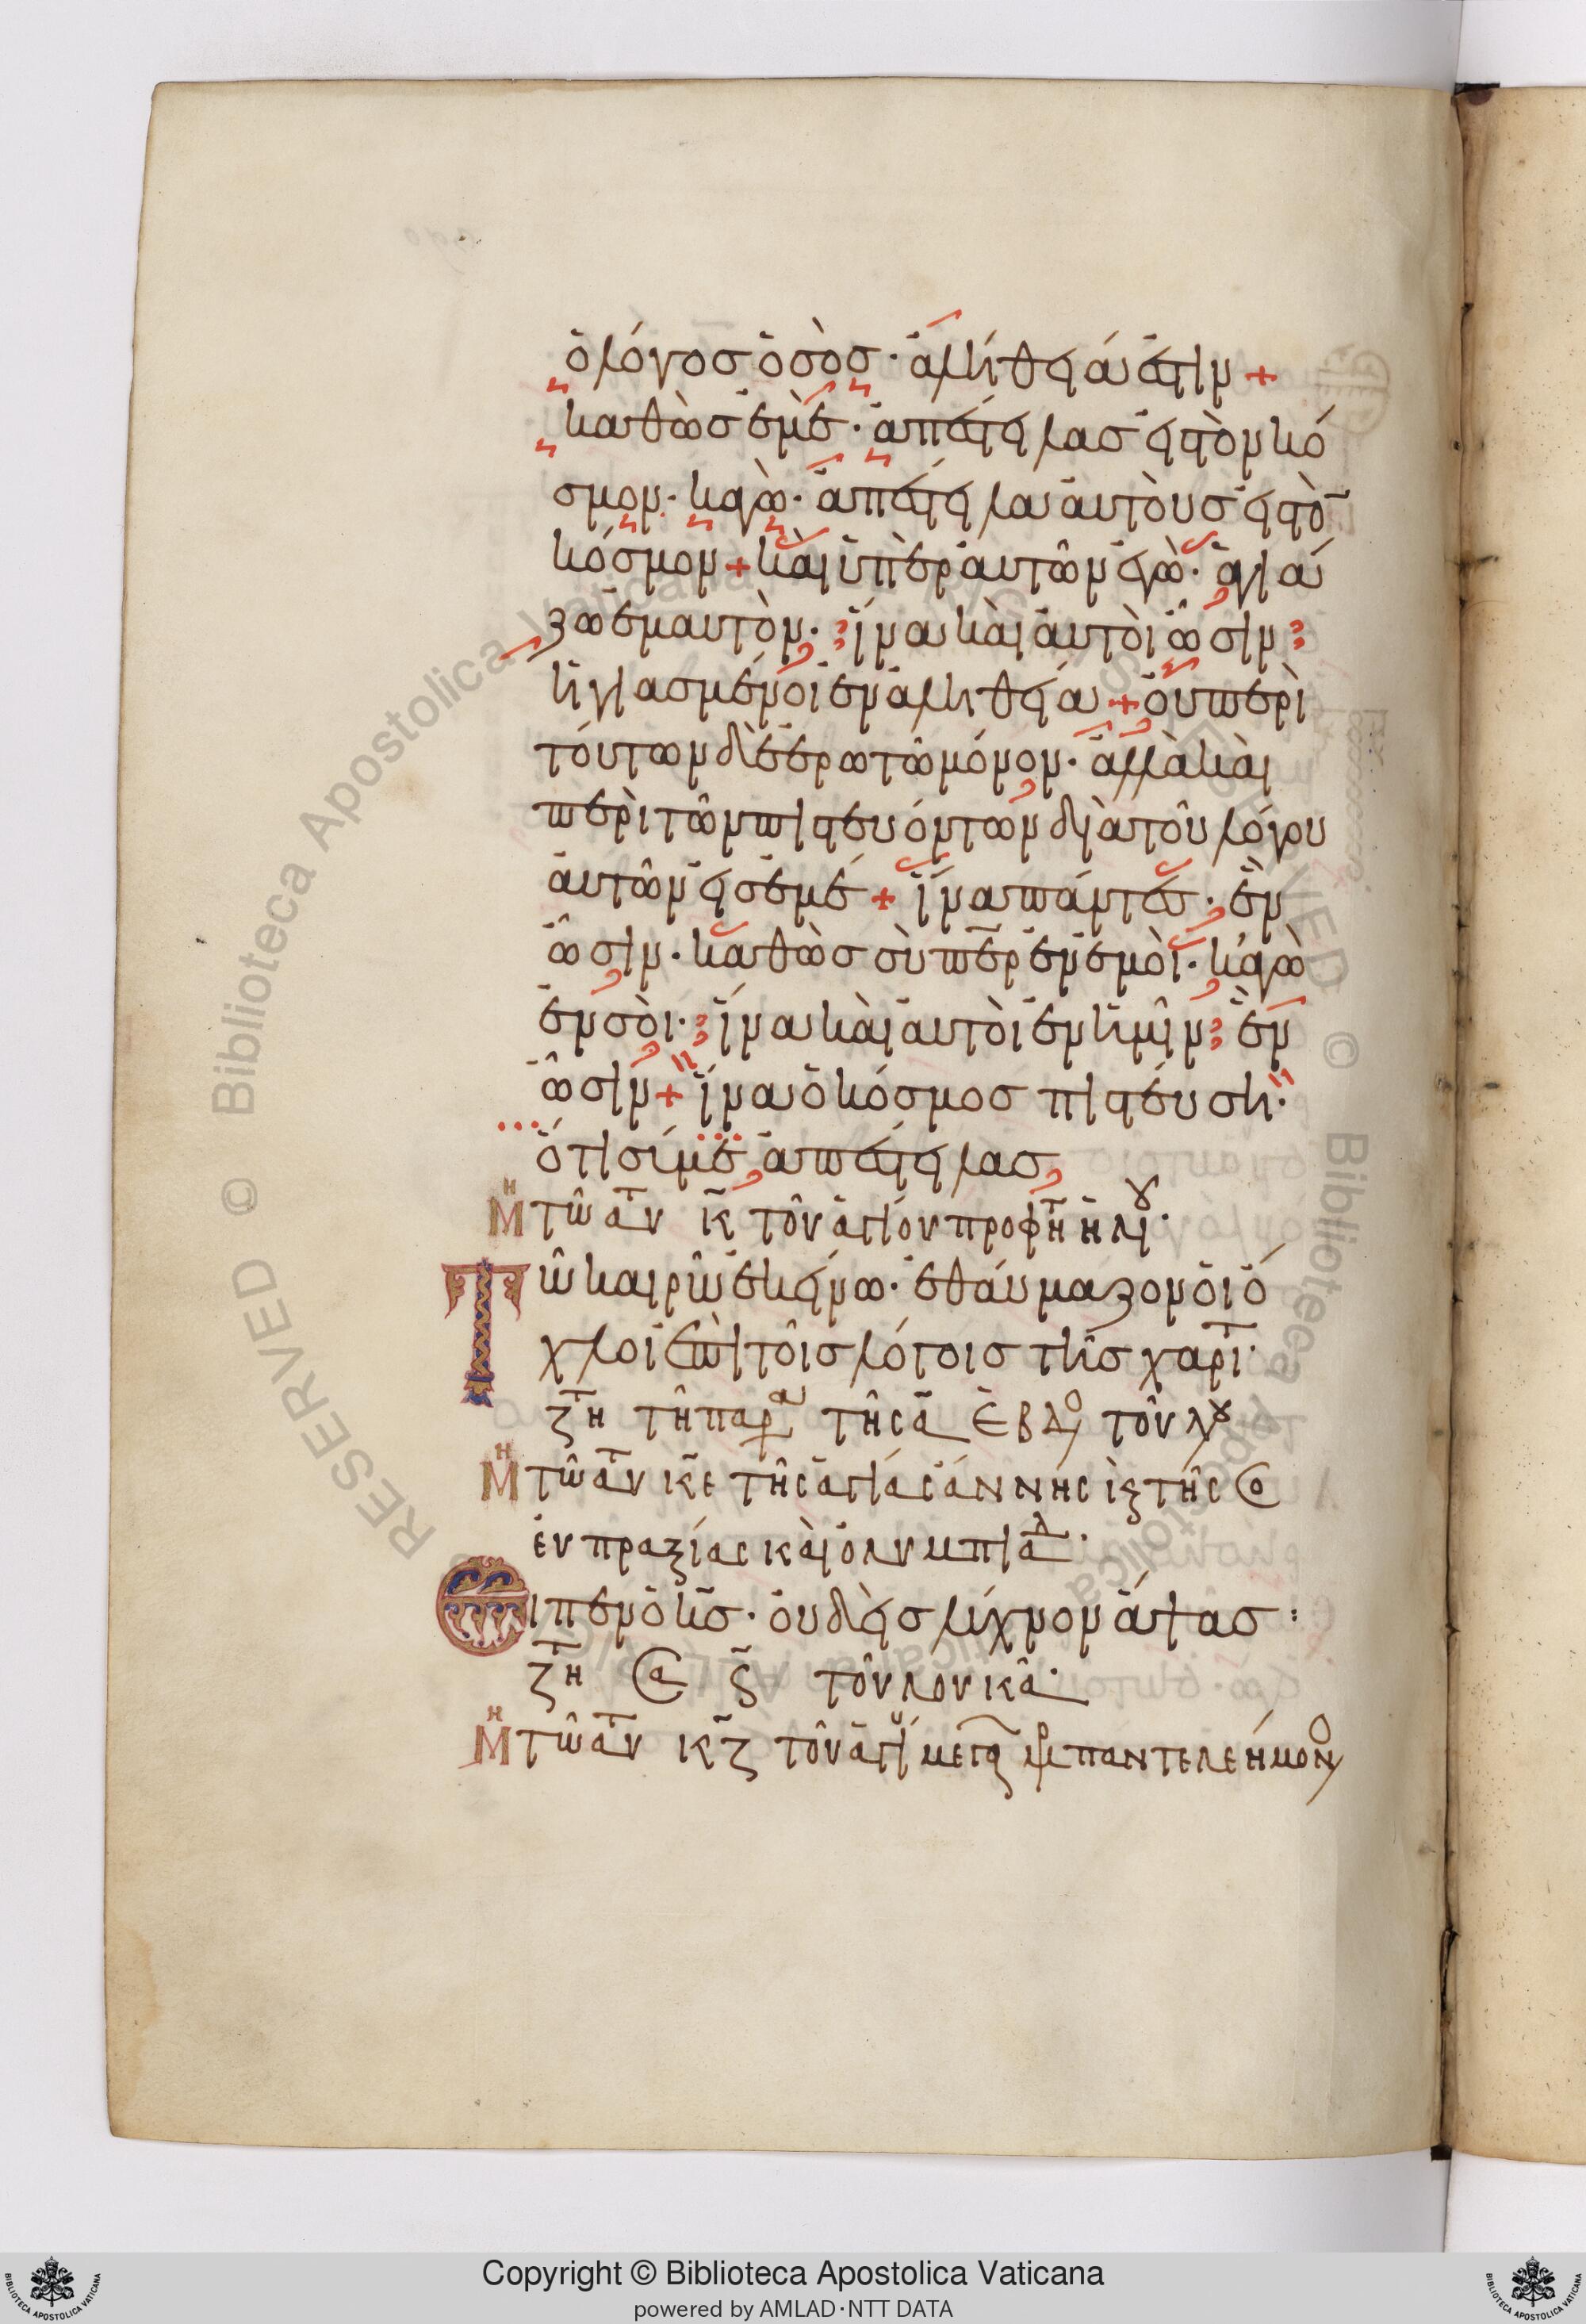 ὁ λόγος ὁ σὸς· ἀλήθειά ἐστιν +
καθὼς ἐμὲ· ἀπέστειλας εἰς τὸν κό
σμον· κἀγὼ· ἀπέστειλα αὐτοὺς εἰς τὸ̄
κόσμον + καὶ ὑπὲρ αὐτῶν ἐγὼ· ἁγιά
ζω ἐμαυτὸν· ἵνα καὶ αὐτοὶ ὦσιν
ἡγιασμένοι ἐν ἀληθεία + οὐ περὶ
τούτων δὲ ἐρωτῶ μόνον· ἀλλὰ καὶ
περὶ τῶν πιστευόντων διὰ τοῦ λόγου
αὐτῶν εἰς ἐμέ + ἵνα πάντες· ἓν
ὦσιν· καθὼς σὺ πε̄ρ ἐν ἐμοὶ· κἀγὼ
ἐν σοὶ· ἵνα καὶ αὐτοὶ ἐν ἡμῖν ἓν
ὦσιν + ἵνα ὁ κόσμος πιστεύση·
ὅτι σύ με ἀπέστειλας
Μη τῶ αυτ κ̄ τοῦ ἁγίου προφητ ἠλιου·
Τῶ καιρῶ ἐκείνω· ἐθαύμαζον οἱ ὄ
χλοι ἐπὶ τοῖς λόγοις τῆς χάριτ·
ζητ τῆ παρα τῆς α̅ ἑβδο τοῦ λου
Μη τῶ αυτ κ̅ε τῆς ἁγίας ἄννης
εὐπραξίας καὶ ὀλυμπιάδ·
Εἶπεν ὁ κ̄ς· οὐδεὶς λύχνον ἅψας :
ζητ Σα ς̅ τοῦ λουκᾶ·
Μη τῶ αυτ κ̅ζ τοῦ ἁγι μεγα μρ παντελεήμονο
Copyright © Biblioteca Apostolica Vaticana
powered by AMLAD·NTT DATA
RESERVED © Biblioteca Apostolica Vaticana